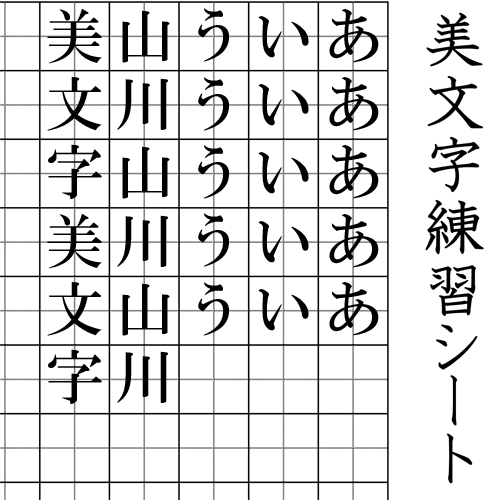 美文字練習シート
あああああ
いいいいい
ううううう
山川山川山川
美文字美文字